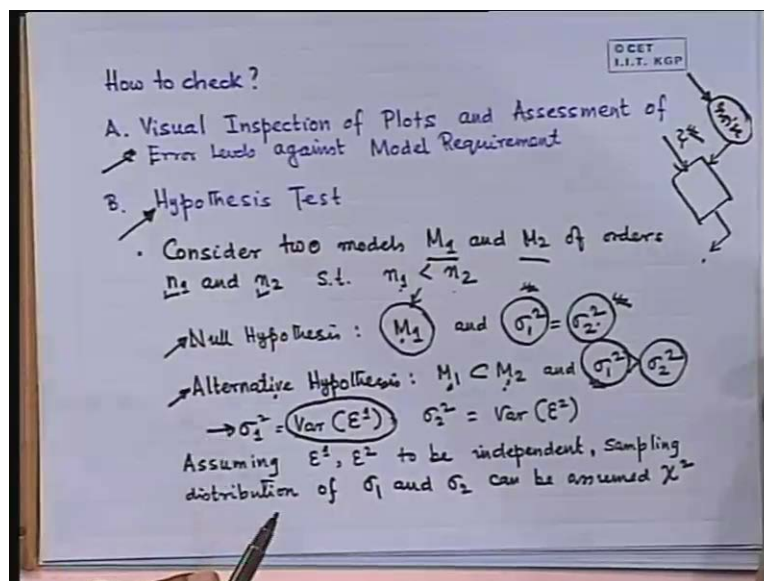 © CET
I.I.T. KGP
How to check?
A. Visual Inspection of Plots and Assessment of
Error Levels against Model Requirement
B. Hypothesis Test
• Consider two models M1 and M2 of orders
n1 and n2 s.t. n1 < n2
Null Hypothesis : M1 and σ1² = σ2²
Alternative Hypothesis : M1 ⊂ M2 and σ1² > σ2²
→ σ1² = Var (ε¹) σ2² = Var (ε²)
Assuming ε¹, ε² to be independent, sampling
distribution of σ1 and σ2 can be assumed χ²